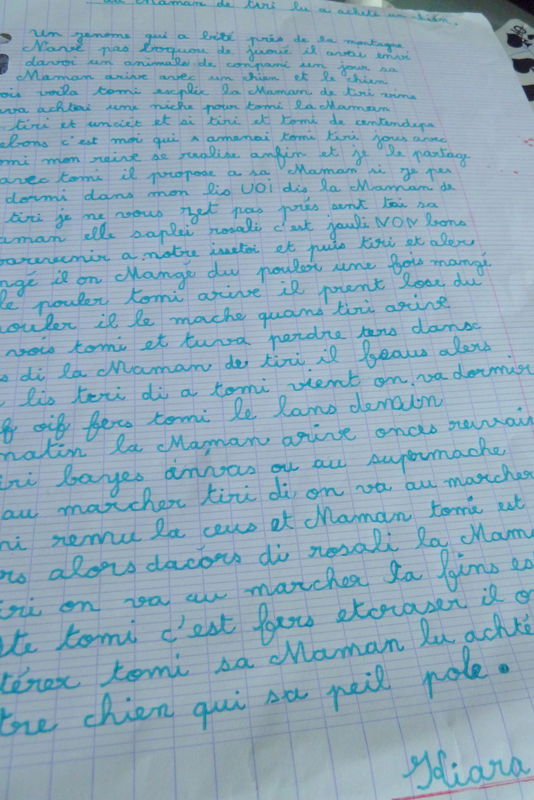 Maman de tiri lu a acheté un chien.
Un genome qui a bité prés de la montagne
Navré pas boquou de jaoué il avai envi
davoi un animals de conpani un jour sa
Maman arive avec un chien et le chien
ois voila tomi esplic la Maman de tiri vine
va achtai une niche pour tomi la Maman
tiri et unciét et si tiri et tomi de centendeps
ebons c'est moi qui s amenai tomi tiri joues avec
omi mon reive se realise anfin et je le partag
avec tomi il propose a sa Maman si ge per
dormi dans mon lis UOI dis la Maman de
tiri je ne vous zet pas prés sent tai sa
aman elle saplei rosali c'est jauli NON bons
parevenir a notre issetoi et puis tiri et aler
ngé il on Mangé du pouler une fois mangé
le pouler tomi arive il prent lose du
ouler il le mache quans tiri arive
vois tomi et tuva perdre ters danse
s di la Maman de tiri il feaus alers
lis teri di a tomi vient on va dormir
f oif fers tomi le lans demain
matin la Maman arive onces reurais
iri bayes anvas ou au supermache
au marcher tiri di, on va au marcher
mi remu la ceus et Maman tomi est
rs alors dacors di rosali la Mama
iri on va au marcher la fins es
te tomi c'est fers etcraser il o
térer tomi sa Maman lu achté
tre chien qui sa peil pole.
Kiara